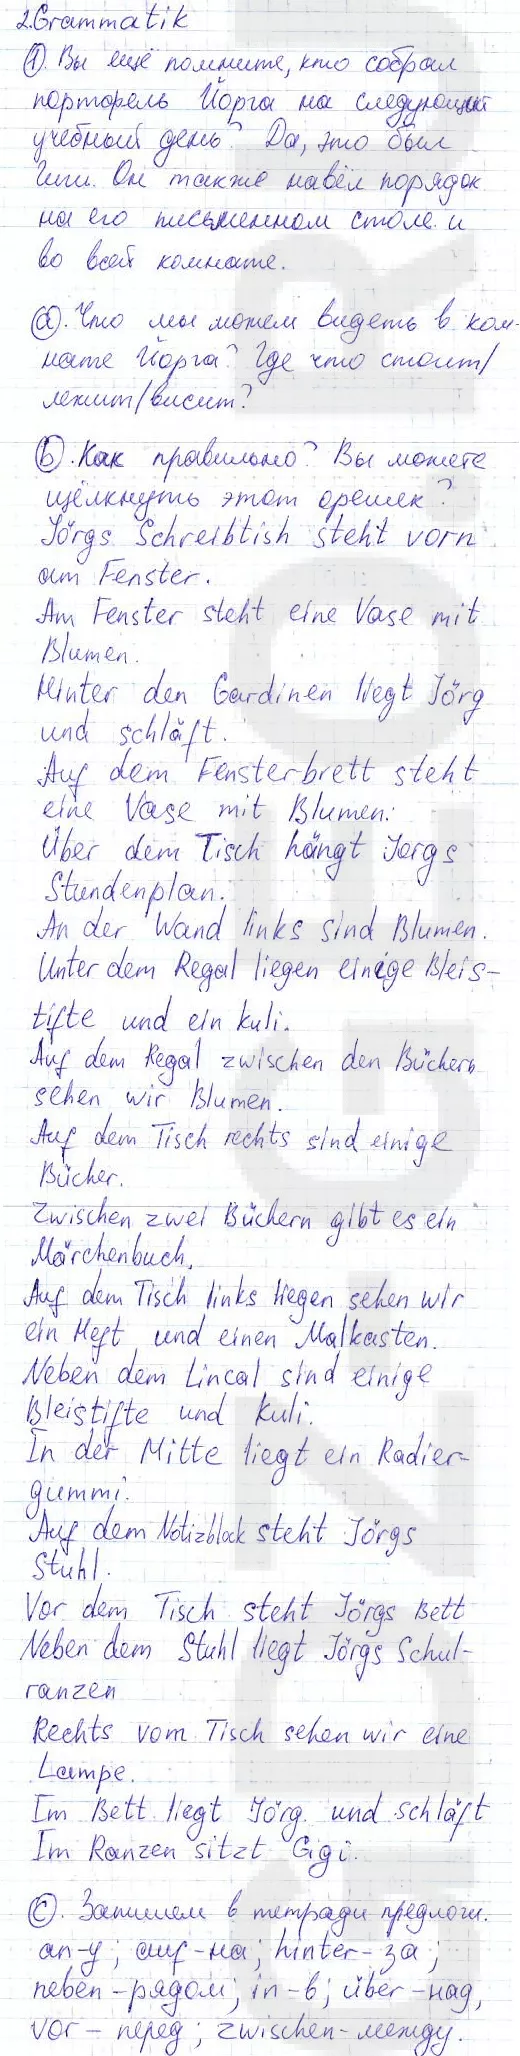 2.Grammatik
①. Вы ещё помните, кто собрал
портфель Йорга на следующий
учебный день? Да, это был
Гиги. Он также навёл порядок
на его письменном столе и
во всей комнате.
ⓐ. Что мы можем видеть в ком-
нате Йорга? Где что стоит/
лежит/висит?
ⓑ. Как правильно? Вы можете
щёлкнуть этот орешек?
Jörgs Schreibtish steht vorn
am Fenster.
Am Fenster steht eine Vase mit
Blumen.
Hinter den Gardinen liegt Jörg
und schläft.
Auf dem Fensterbrett steht
eine Vase mit Blumen.
Über dem Tisch hängt Jorgs
Stundenplan.
An der Wand links sind Blumen.
Unter dem Regal liegen einige Bleis-
tifte und ein kuli.
Auf dem Regal zwischen den Büchern
sehen wir Blumen.
Auf dem Tisch rechts sind einige
Bücher.
Zwischen zwei Büchern gibt es ein
Märchenbuch.
Auf dem Tisch links liegen sehen wir
ein Heft und einen Malkasten.
Neben dem Lincal sind einige
Bleistifte und kuli.
In der Mitte liegt ein Radier-
gummi.
Auf dem Notizblock steht Jörgs
Stuhl.
Vor dem Tisch steht Jörgs Bett
Neben dem Stuhl liegt Jörgs Schul-
ranzen
Rechts vom Tisch sehen wir eine
Lampe.
Im Bett liegt Jörg und schläft
Im Ranzen sitzt Gigi.
ⓒ. Запишем в тетради предлоги.
an-у; auf-на; hinter-за;
neben-рядом; in-в; über-над,
vor-перед; zwischen-между.
GDZ-GEO.RU